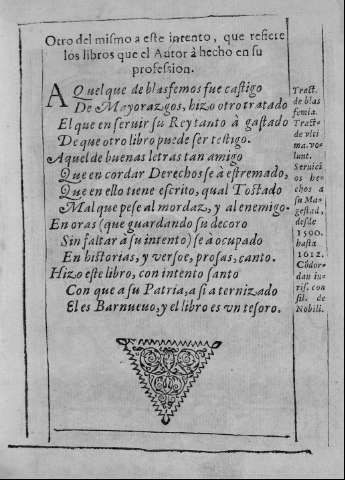 Otro del mismo a este intento, que refiere
los libros que el Autor à hecho en su
profession.
AQuel que de blasfemos fue castigo
De Mayorazgos, hizo otro tratado
El que en seruir su Rey tanto à gastado
De que otro libro puede ser testigo.
Aquel de buenas letras tan amigo
Que en cordar Derechos se à estremado,
Que en ello tiene escrito, qual Tostado
Mal que pese al mordaz, y al enemigo.
En oras (que guardando su decoro
Sin faltar à su intento) se à ocupado
En historias, y versoe, prosas, canto.
Hizo este libro, con intento santo
Con que a su Patria, a si a ternizado
El es Barnueuo, y el libro es vn tesoro.
Tract.
de blas
femia.
Tracte
de vlti
ma. vo-
lunt.
Seruici
os he-
chos a
su Ma-
gestad,
desde
1590.
hasta
1612.
Cócor-
dan iu-
ris. con
sil. de
Nobili.